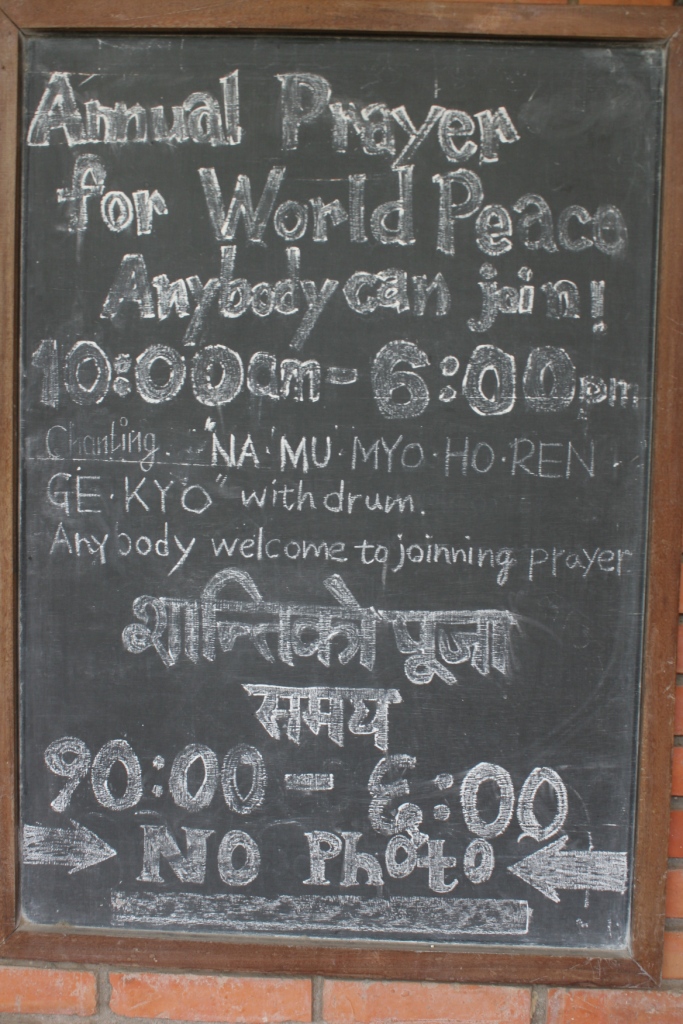 Annual Prayer
for World Peace
Anybody can join!
10:00am - 6:00pm
Chanting. "NA·MU·MYO·HO·REN·
GE·KYO" with drum.
Anybody welcome to joinning prayer
शान्तिको पूजा
समय
१०:०० - ६:००
No Photo